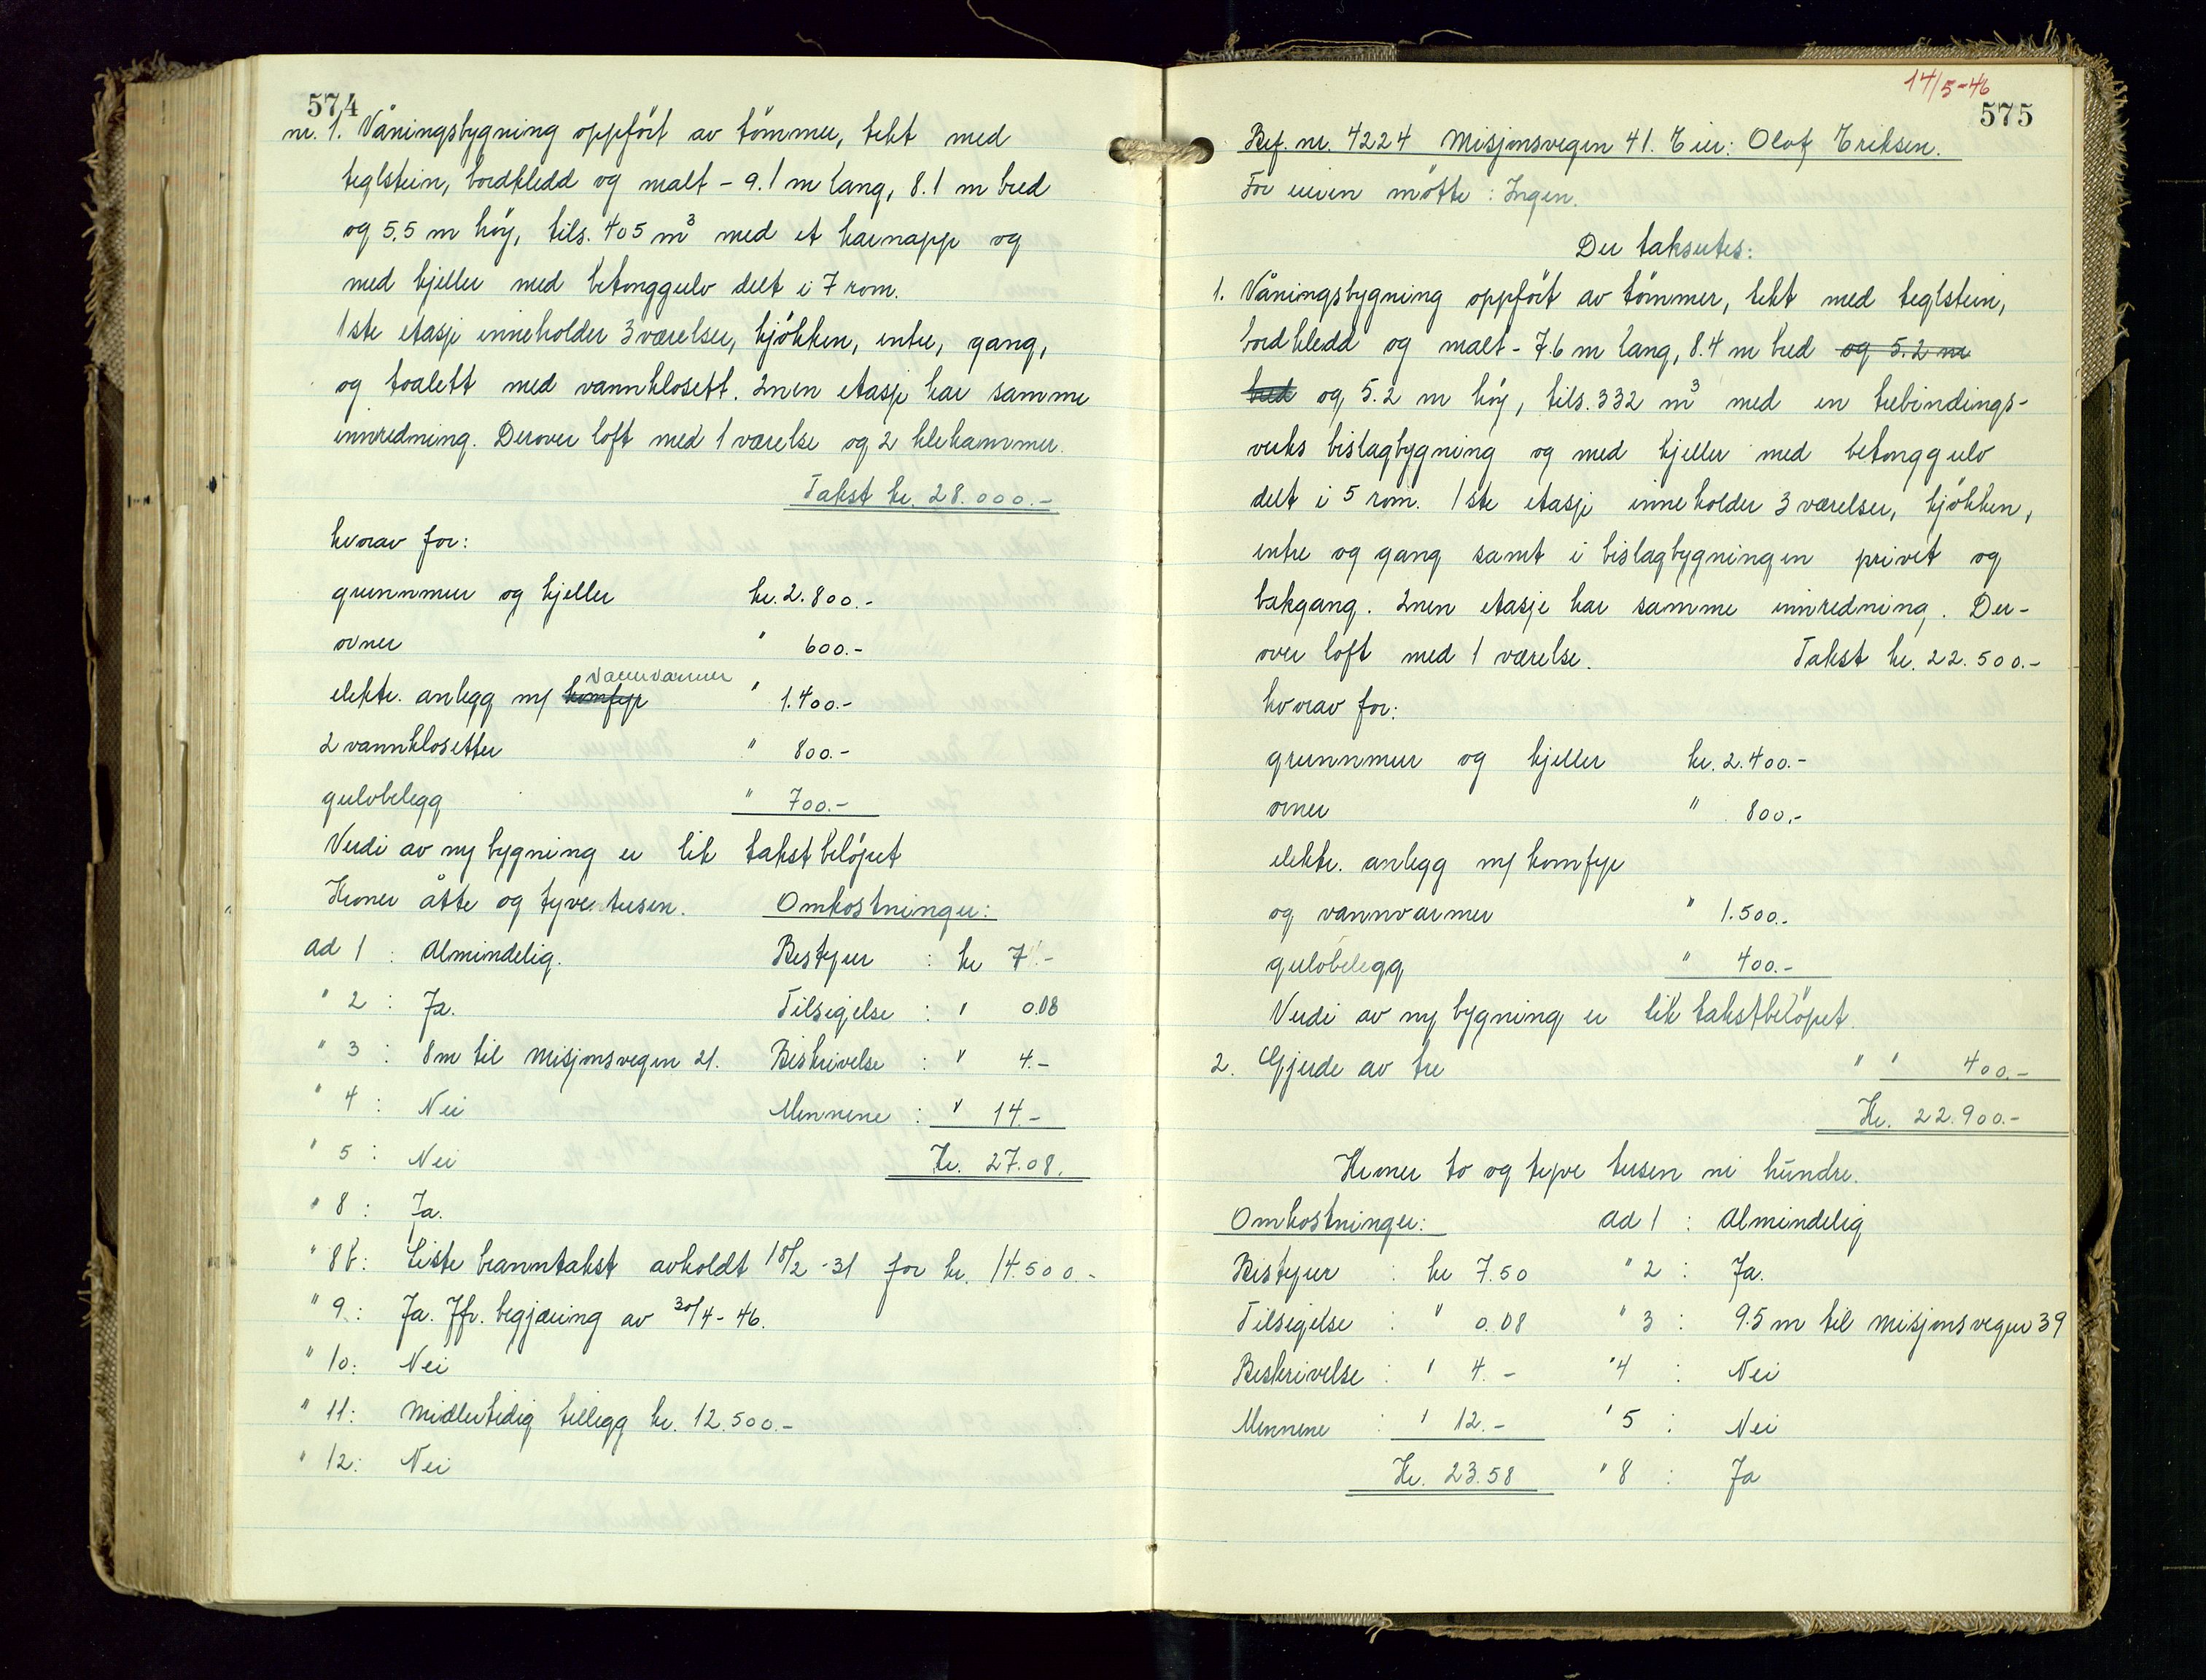 574
nr. 1. Våningsbygning oppført av tømmer, tekt med
teglstein, bordkledd og malt - 9.1 m lang, 8.1 m bred
og 5.5 m høy, tils. 405 m³ med et karnapp og
med kjeller med betonggulv delt i 7 rom.
1ste etasje inneholder 3 værelser, kjøkken, entre, gang,
og toalett med vannklosett. 2nen etasje har samme
innredning. Derover loft med 1 værelse og 2 klekammer.
Takst kr. 28.000.-
hvorav for:
grunnmur og kjeller kr. 2.800.-
ovner " 600.-
vannvarmer
elektr. anlegg m/ komfyr " 1.400.-
2 vannklosetter " 800.-
gulvbelegg " 700.-
Verdi av ny bygning er lik takstbeløpet
Kroner åtte og tyve tusen. Omkostninger:
ad 1 : Almindelig. Bestyrer : kr 7.-
" 2 : Ja. Tilsigelse : " 0.08
" 3 : 8 m til Misjonsvegen 21. Beskrivelse : " 4.-
" 4 : Nei Mennene : " 14.-
" 5 : Nei Kr. 27.08.
" 8 : Ja.
" 8b: Siste branntakst avholdt 18/2 -31 for kr. 14.500.-
" 9.: Ja. Jfr. begjæring av 30/4 - 46.
" 10: Nei
" 11: Midlertidig tillegg kr. 12.500.-
" 12: Nei
14/5-46
575
Bef. nr. 4224 Misjonsvegen 41. Eier: Olaf Eriksen.
For eieren møtte : Ingen.
Der taksertes:
1. Våningsbygning oppført av tømmer, tekt med teglstein,
bordkledd og malt - 7.6 m lang, 8.4 m bred og 5.2 m
bred og 5.2 m høy, tils. 332 m³ med en trebindings-
verks bislagbygning og med kjeller med betonggulv
delt i 5 rom. 1ste etasje inneholder 3 værelser, kjøkken,
entre og gang samt i bislagbygningen privet og
bakgang. 2nen etasje har samme innredning. Der-
over loft med 1 værelse. Takst kr. 22.500.-
hvorav for:
grunnmur og kjeller kr. 2.400.-
ovner " 800.-
elektr. anlegg m/ komfyr
og vannvarmer " 1.500.-
gulvbelegg " 400.-
Verdi av ny bygning er lik takstbeløpet.
2. Gjerde av tre " " 400.-
Kr. 22.900.-
Kroner to og tyve tusen ni hundre.
Omkostninger: ad 1 : Almindelig
Bestyrer : kr 7.50 " 2 : Ja.
Tilsigelse : " 0.08 " 3 : 9.5 m til Misjonsvegen 39
Beskrivelse : " 4.- " 4 : Nei
Mennene : " 12.- " 5 : Nei
Kr. 23.58 " 8 : Ja